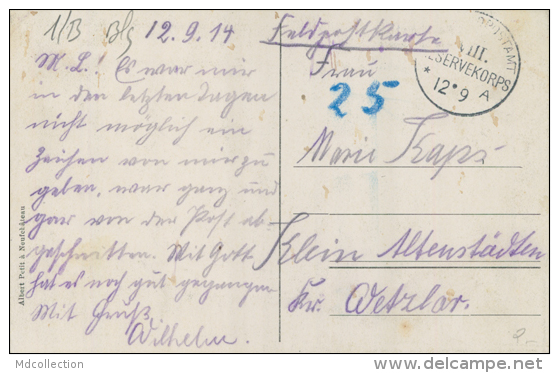 1/B Blg 12.9.14 Feldpostkarte
M. L.! Es war mir
in den letzten Tagen
nicht möglich ein
Zeichen von mir zu
geben, war ganz und
gar von der Post ab-
geschnitten. Mit Gott
hat es noch gut gegangen.
Mit Gruß
Wilhelm.
Frau
25
Marie Kaps
Klein Altenstädten
Kr. Wetzlar.
III.
RESERVEKORPS
* 12*9 A
Albert Petit à Neufchâteau
2.-
Mdcollection
www.delcampe.net